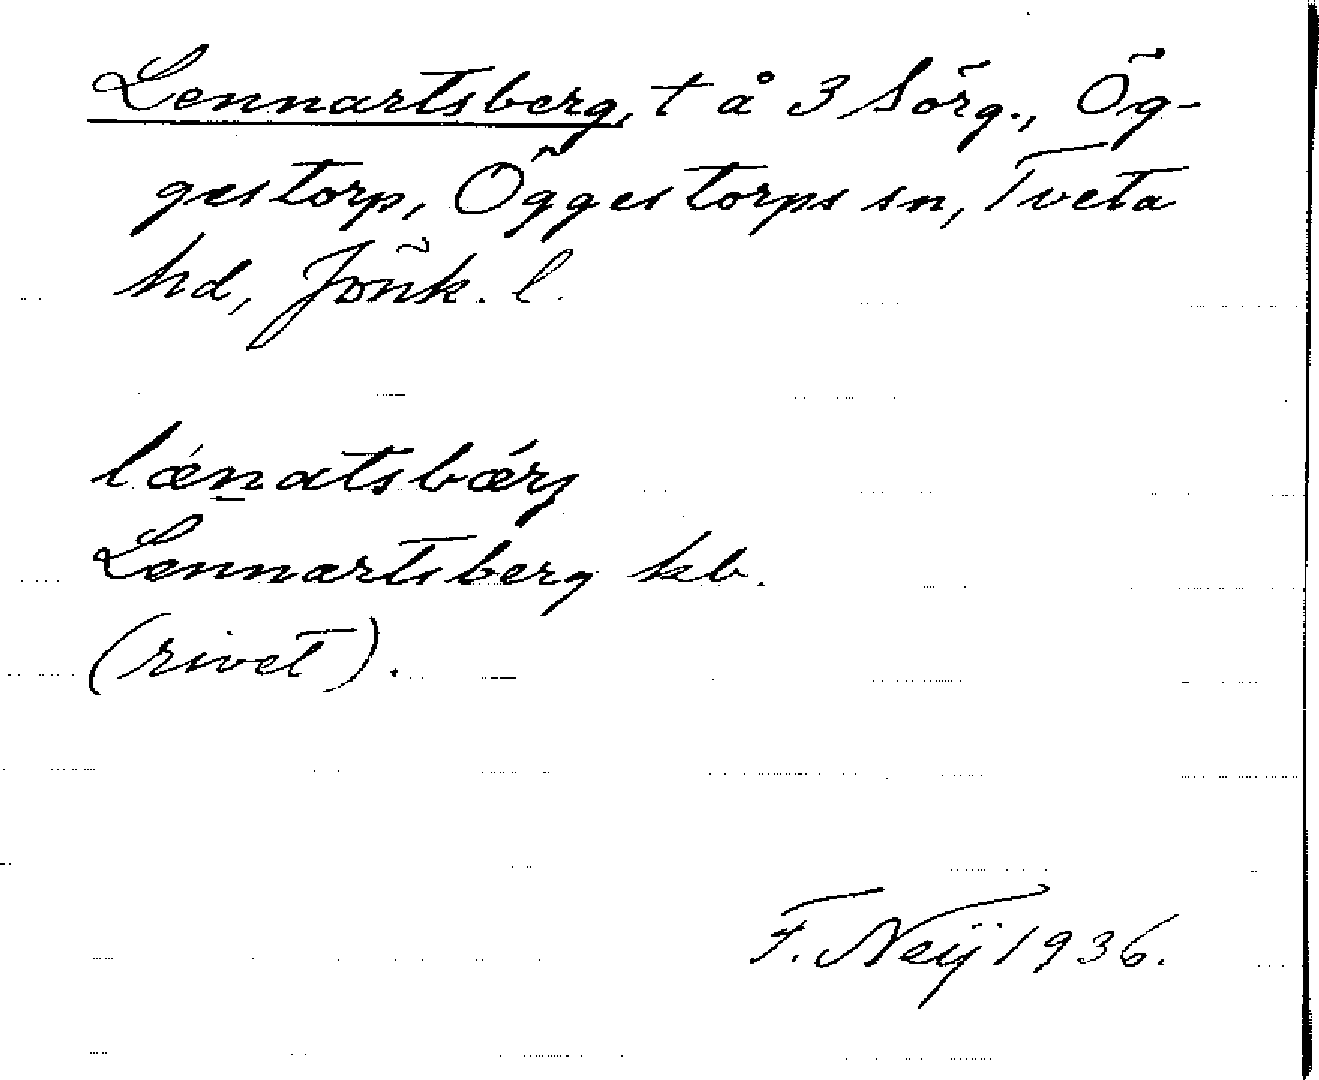 Lennartsberg, t å 3 Sörg., Ög-
gestorp, Öggestorps sn, Tveta
hd, Jönk. l.
lǽn̲atsbǽrj
Lennartsberg kb.
(rivet).
F. Neij 1936.